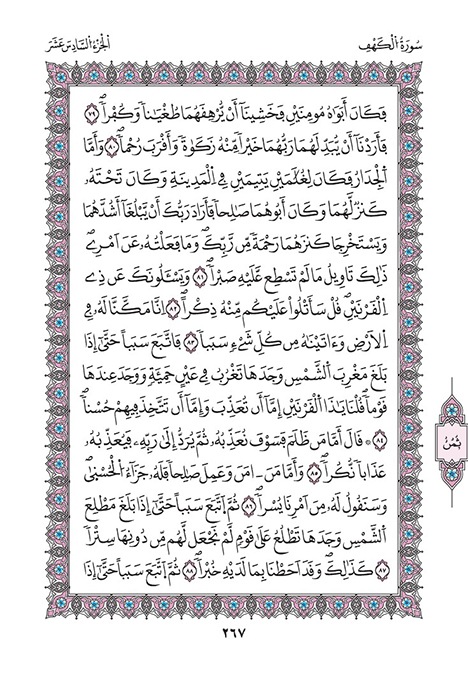 سُورَةُ اُ۬لْكَهْفِ
اَ۬لْجُزْءُ اُ۬لسَّادِسَ عَشَرَ
فَكَانَ أَبَوَٰهُ مُومِنَيْنِ فَخَشِينَآ أَنْ يُّرْهِقَهُمَا طُغْيَٰناٗ وَكُفْراٗ ٧٩
فَأَرَدْنَآ أَنْ يُّبَدِّلَهُمَا رَبُّهُمَا خَيْراٗ مِّنْهُ زَكَوٰةٗ وَأَقْرَبَ رُحْماٗ ٨٠ وَأَمَّا
اَ۬لْجِدَارُ فَكَانَ لِغُلَٰمَيْنِ يَتِيمَيْنِ فِے اِ۬لْمَدِينَةِ وَكَانَ تَحْتَهُۥ
كَنزٞ لَّهُمَا وَكَانَ أَبُوهُمَا صَٰلِحاٗ فَأَرَادَ رَبُّكَ أَنْ يَّبْلُغَآ أَشُدَّهُمَا
وَيَسْتَخْرِجَا كَنزَهُمَا رَحْمَةٗ مِّن رَّبِّكَ وَمَا فَعَلْتُهُۥ عَنَ اَمْرِےۖ
ذَٰلِكَ تَاوِيلُ مَا لَمْ تَسْطِع عَّلَيْهِ صَبْراٗ ٨١ وَيَسْـَٔلُونَكَ عَن ذِے
اِ۬لْقَرْنَيْنِ قُلْ سَأَتْلُواْ عَلَيْكُم مِّنْهُ ذِكْراًۖ ٨٢ اِنَّا مَكَّنَّا لَهُۥ فِے
اِ۬لَارْضِ وَءَاتَيْنَٰهُ مِن كُلِّ شَےْءٖ سَبَباٗ ٨٣ فَاتَّبَعَ سَبَباً حَتَّيٰٓ إِذَا
بَلَغَ مَغْرِبَ اَ۬لشَّمْسِ وَجَدَهَا تَغْرُبُ فِے عَيْنٍ حَمِئَةٖ وَوَجَدَ عِندَهَا
قَوْماٗ قُلْنَا يَٰذَا اَ۬لْقَرْنَيْنِ إِمَّآ أَن تُعَذِّبَ وَإِمَّآ أَن تَتَّخِذَ فِيهِمْ حُسْناٗ
٨٤ ۞ قَالَ أَمَّا مَن ظَلَمَ فَسَوْفَ نُعَذِّبُهُۥ ثُمَّ يُرَدُّ إِلَيٰ رَبِّهِۦ فَيُعَذِّبُهُۥ
عَذَاباٗ نُّكُراٗ ٨٥ وَأَمَّا مَنَ اٰمَنَ وَعَمِلَ صَٰلِحاٗ فَلَهُۥ جَزَآءُ اُ۬لْحُسْنَيٰ
وَسَنَقُولُ لَهُۥ مِنَ اَمْرِنَا يُسْراٗ ٨٦ ثُمَّ اَتَّبَعَ سَبَباً حَتَّيٰٓ إِذَا بَلَغَ مَطْلِعَ
اَ۬لشَّمْسِ وَجَدَهَا تَطْلُعُ عَلَيٰ قَوْمٖ لَّمْ نَجْعَل لَّهُم مِّن دُونِهَا سِتْراٗ
٨٧ كَذَٰلِكَ وَقَدَ اَحَطْنَا بِمَا لَدَيْهِ خُبْراٗ ٨٨ ثُمَّ اَتَّبَعَ سَبَباً حَتَّيٰٓ إِذَا
ثُمُنُ
٢٦٧